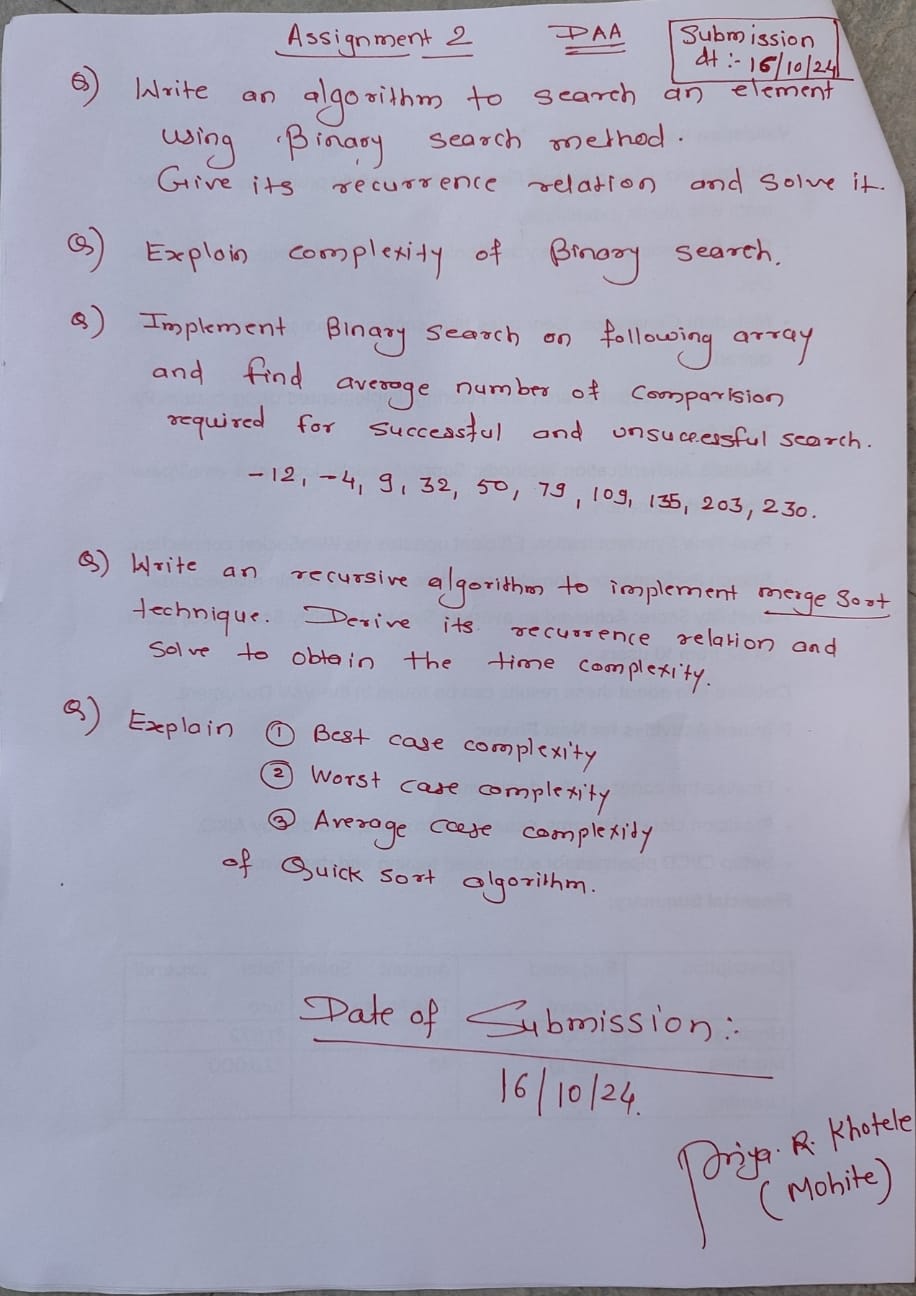 Assignment 2 DAA
Submission
dt :- 16/10/24
Q) Write an algorithm to search an element
using Binary search method.
Give its recurrence relation and solve it.
Q) Explain complexity of Binary search.
Q) Implement Binary search on following array
and find average number of comparision
required for successful and unsuccessful search.
-12, -4, 9, 32, 50, 79, 109, 135, 203, 230.
Q) Write an recursive algorithm to implement merge sort
technique. Derive its recurrence relation and
solve to obtain the time complexity.
Q) Explain ① Best case complexity
② Worst case complexity
③ Average case complexity
of Quick sort algorithm.
Date of Submission:
16/10/24.
Priya. R. Khotele
(Mohite)